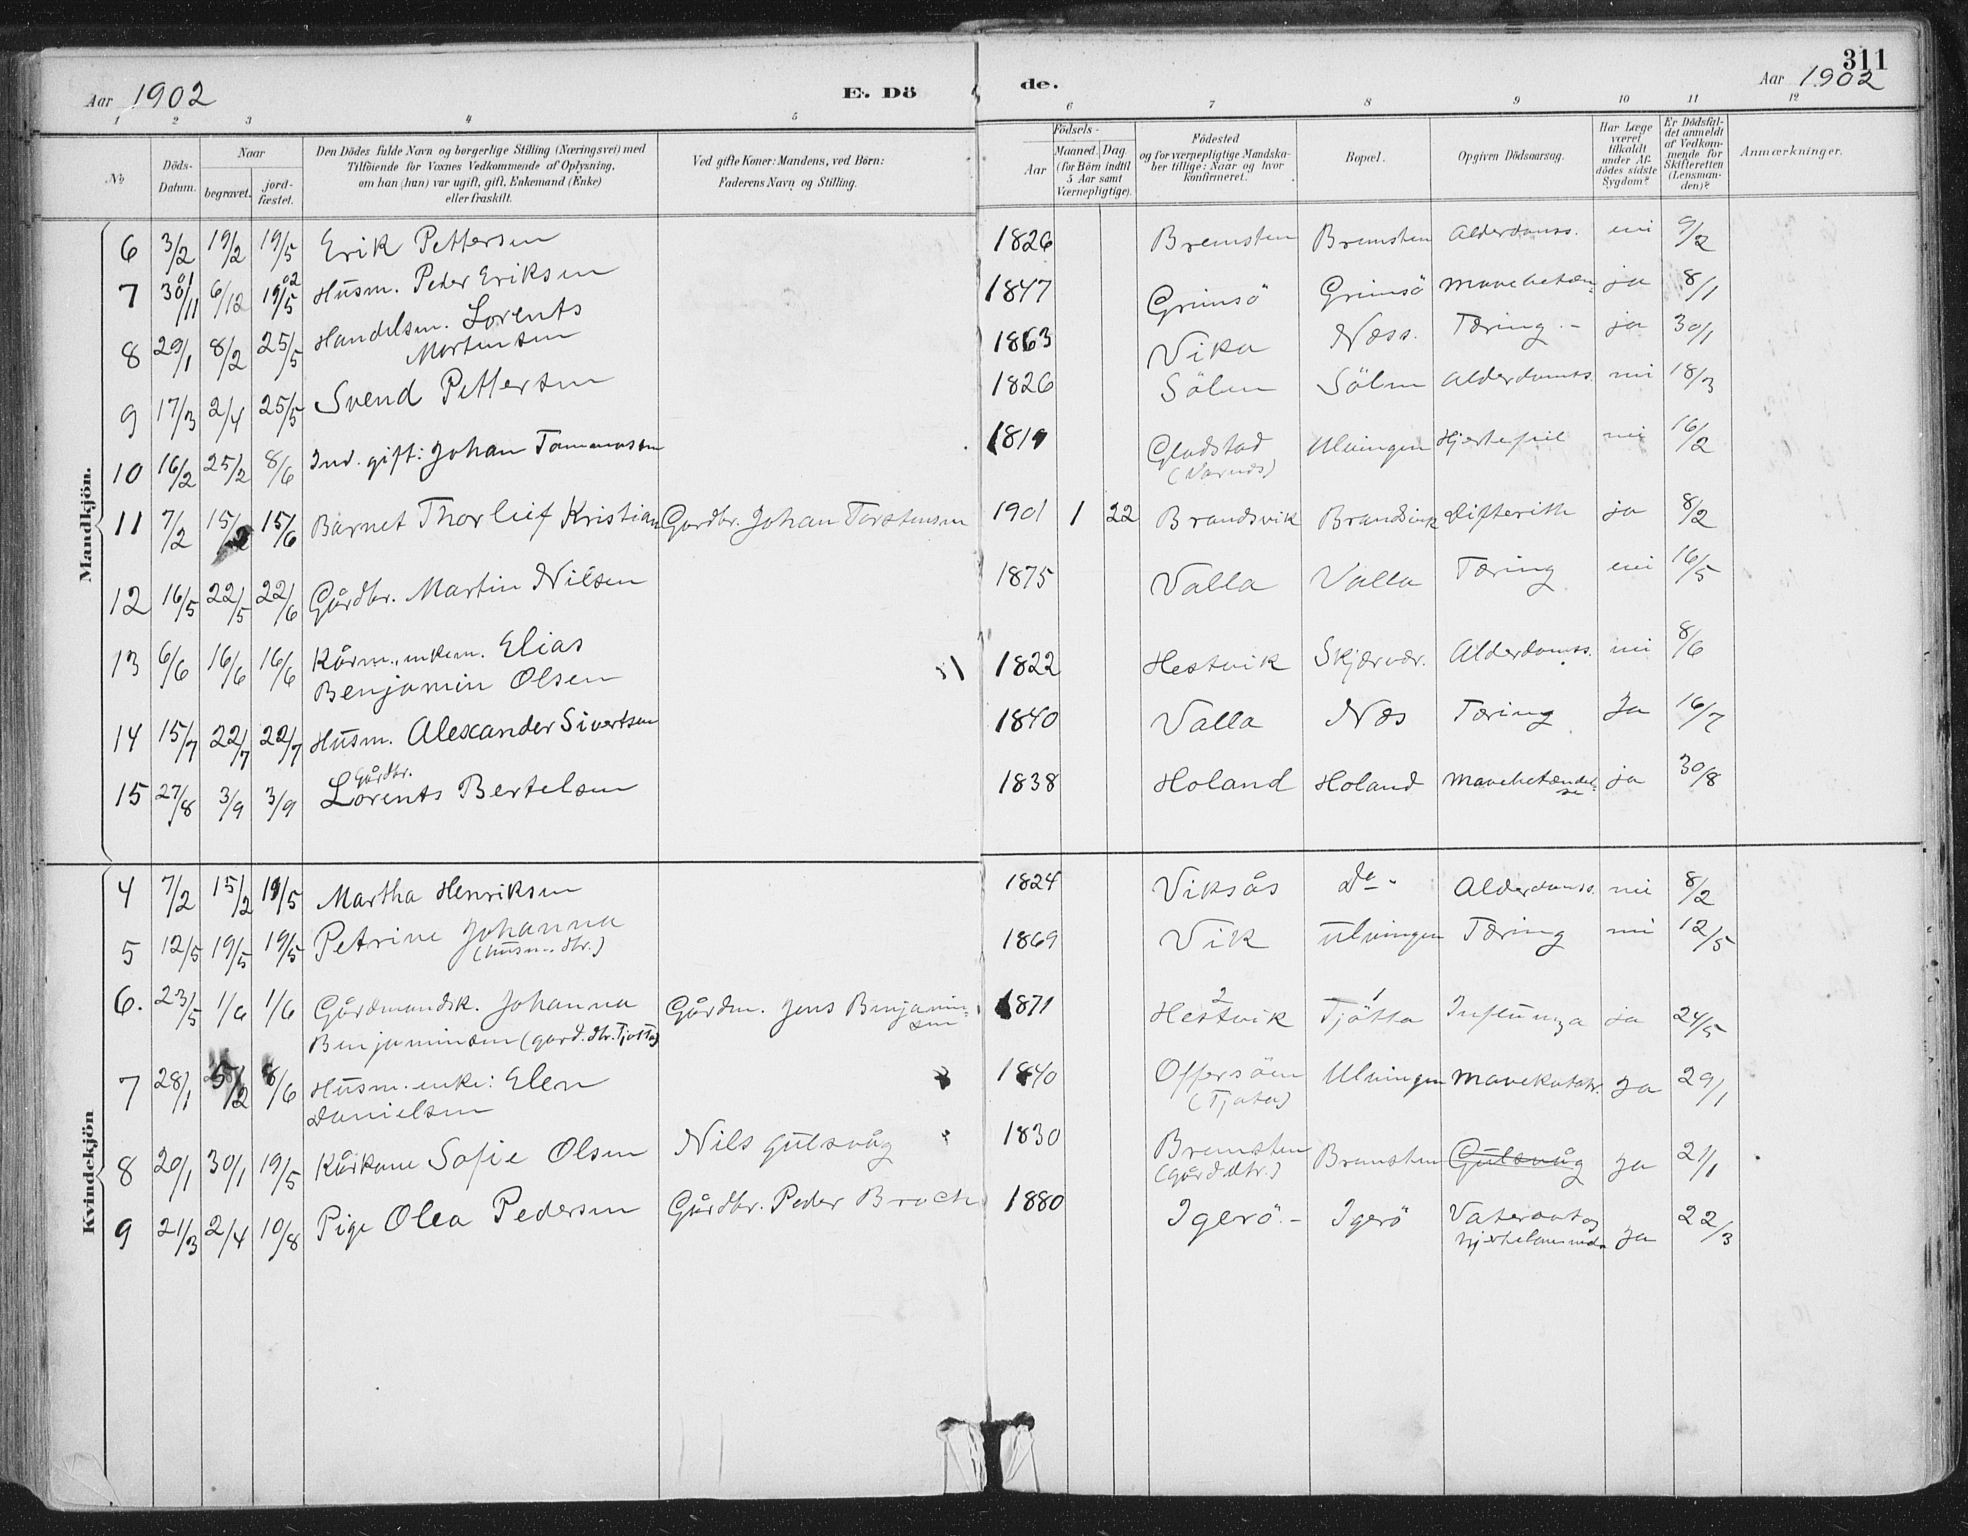 311
Aar 1902
E. Dö
de.
Aar 1902
1 2 3 4 5 6 7 8 9 10 11 12
No
Döds-
Datum.
Naar
begravet.
jord-
fæstet.
Den Dödes fulde Navn og borgerlige Stilling (Næringsvei) med
Tilföiende for Voxnes Vedkommende af Oplysning,
om han (hun) var ugift, gift, Enkemand (Enke)
eller fraskilt.
Ved gifte Koner: Mandens, ved Börn:
Faderens Navn og Stilling.
Födsels-
Aar
Maaned. Dag
(for Börn indtil
5 Aar samt
Værnepligtige).
Födested
og for værnepligtige Mandska-
ber tillige: Naar og hvor
konfirmeret.
Bopæl.
Opgiven Dödsaarsag.
Har Læge
været
tilkaldt
under Af-
dödes sidste
Sygdom?
Er Dödsfal-
det anmeldt
af Vedkom-
mende for
Skifteretten
(Lensman-
den)?
Anmærkninger.
Mandkjön.
6 3/2 19/2 19/5 Erik Pettersen 1826 Bremsten Bremsten Alderdomss. nei 9/2
7 30/11 01 6/12 19/5 02 Husm. Peder Eriksen 1847 Grimsö Grimsö Mavebetæn- ja 8/1
8 29/1 8/2 25/5 Handelsm. Lorents
Mortensen 1863 Vika Næss. Tæring.- ja 30/1
9 17/3 2/4 25/5 Svend Pettersen 1826 Sölen Sölen Alderdomss nei 18/3
10 16/2 25/2 8/6 Ind. gift: Johan Tommasen 1819 Gladstad Ulvingen Hjertefeil nei 16/2
11 7/2 15/2 15/6 Barnet Thorleif Kristian Gardbr. Johan Torstensen 1901 1 22 Brandsvik Brandsvik Difterith ja 8/2
12 16/5 22/5 22/6 Gårdbr. Martin Nilsen 1875 Valla Valla Tæring nei 16/5
13 6/6 16/6 16/6 Kårm., enkem. Elias
Benjamin Olsen 1822 Hestvik Skjærvær. Alderdomss. nei 8/6
14 15/7 22/7 22/7 Husm. Alexander Sivertsen 1840 Valla Næs Tæring Ja 16/7
15 27/8 3/9 3/9 Gårdbr.
Lorents Bertelsen 1838 Holand Holand Mavebetændel-
se ja 30/8
Kvindekjön
4 7/2 15/2 19/5 Martha Henriksen 1824 Viksås Do Alderdomss. nei 8/2
5 12/5 19/5 19/5 Petrine Johanna
(husm. dtr.) 1869 Vik Ulvingen Tæring nei 12/5
6. 23/5 1/6 1/6 Gårdmandsk. Johanna
Benjaminsen (gard. dtr. Tjötta) Gårdm. Jens Benjamin-
sen 1871 Hestvik Tjötta Influenza ja 24/5
7 28/1 5/2 8/6 Husm. enke: Elen
Danielsen 1840 Offersöen
(Tjøta) Ulvingen Mavekatahr. Ja 29/1
8 20/1 30/1 19/5 Kårkone Sofie Olsen Nils Gulsvåg 1830 Bremsten
(gård. dtr.) Bremsten Gulsvåg Ja 21/1
9 21/3 2/4 10/8 Pige Olea Pedersen Gårdbr. Peder Broch 1880 Igerö.- Igerö Vatersot og
Ja 22/3